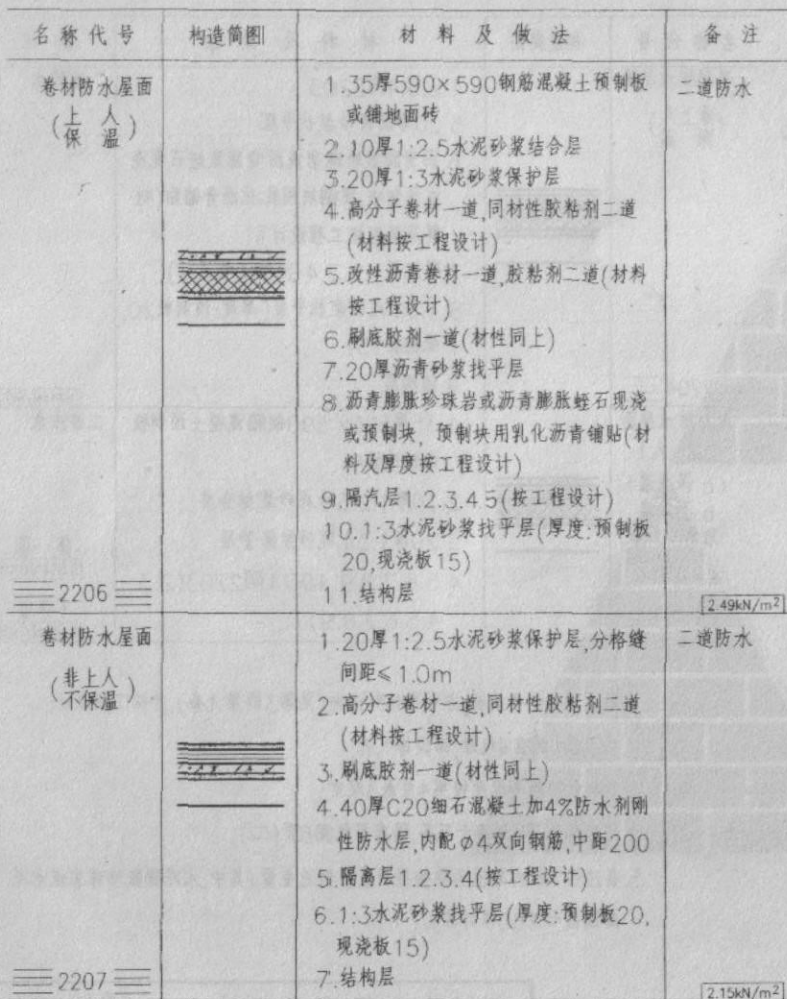 名称代号 构造简图 材料及做法 备注
卷材防水屋面
(上人
保温)
1.35厚590×590钢筋混凝土预制板
或铺地面砖
2.10厚1:2.5水泥砂浆结合层
3.20厚1:3水泥砂浆保护层
4.高分子卷材一道,同材性胶粘剂二道
(材料按工程设计)
5.改性沥青卷材一道,胶粘剂二道(材料
按工程设计)
6.刷底胶剂一道(材性同上)
7.20厚沥青砂浆找平层
8.沥青膨胀珍珠岩或沥青膨胀蛭石现浇
或预制块,预制块用乳化沥青铺贴(材
料及厚度按工程设计)
9.隔汽层1.2.3.4.5(按工程设计)
10.1:3水泥砂浆找平层(厚度:预制板
20,现浇板15)
11.结构层
二道防水
2206
2.49kN/m²
卷材防水屋面
(非上人
不保温)
1.20厚1:2.5水泥砂浆保护层,分格缝
间距≤1.0m
2.高分子卷材一道,同材性胶粘剂二道
(材料按工程设计)
3.刷底胶剂一道(材性同上)
4.40厚C20细石混凝土加4%防水剂刚
性防水层,内配φ4双向钢筋,中距200
5.隔离层1.2.3.4(按工程设计)
6.1:3水泥砂浆找平层(厚度:预制板20,
现浇板15)
7.结构层
二道防水
2207
2.15kN/m²